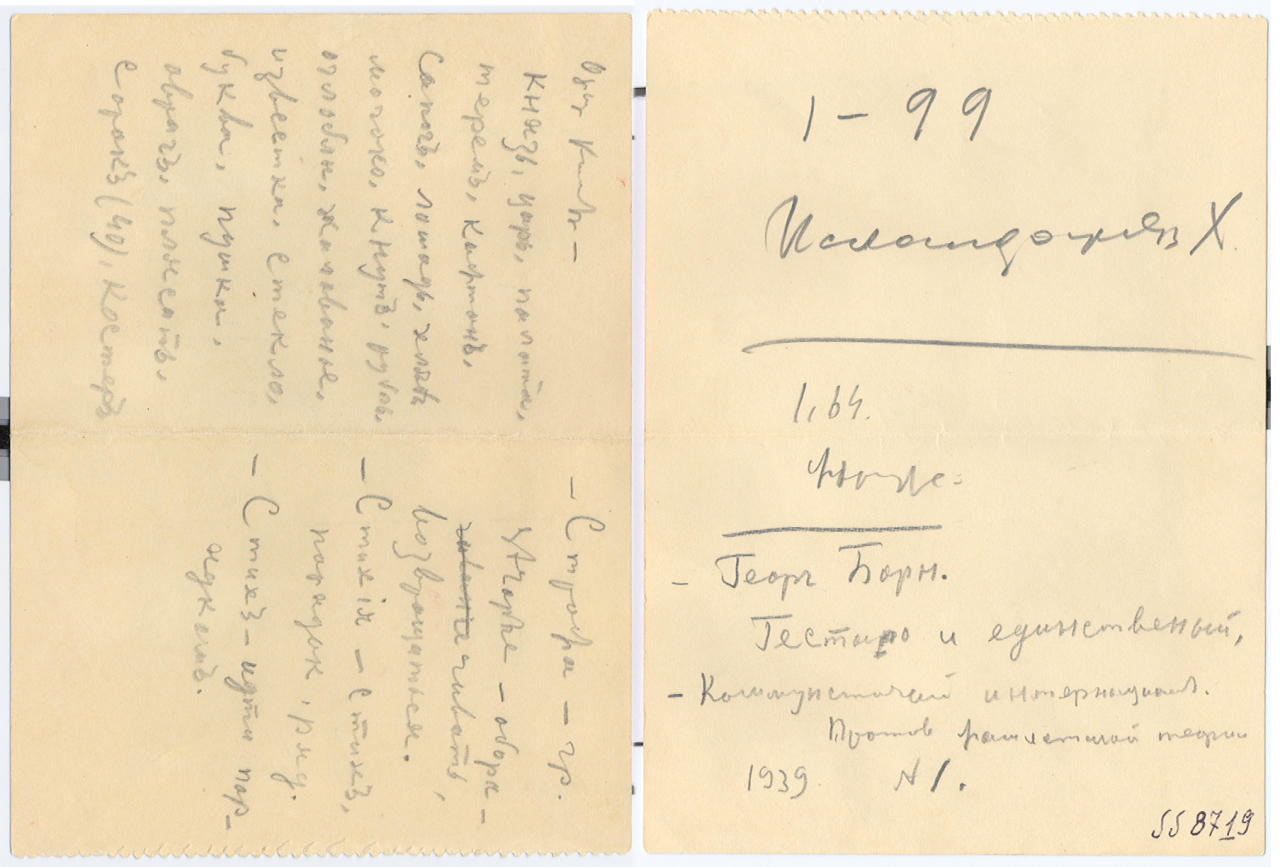 князь, царь, палата,
теремъ, картонъ,
сапогъ, лошадь, хлѣвъ
молоко, кнутъ, рубль,
оглобли, жалованье,
известка, стекло,
буква, пушка,
оврагъ, плясать,
сорокъ (40), костеръ
– Строфа – гр.
– обора-
чивать,
возвращаться.
– Стихія – стихъ,
порядок, ряд.
– Стихъ – идти пор-
ядкомъ.
1 – 99
Х.
1,64.
– Георг Борн.
Гестапо и единственный,
– Коммунистичий интернационал.
Против расистской теории
1939 N 1.
SS 8719